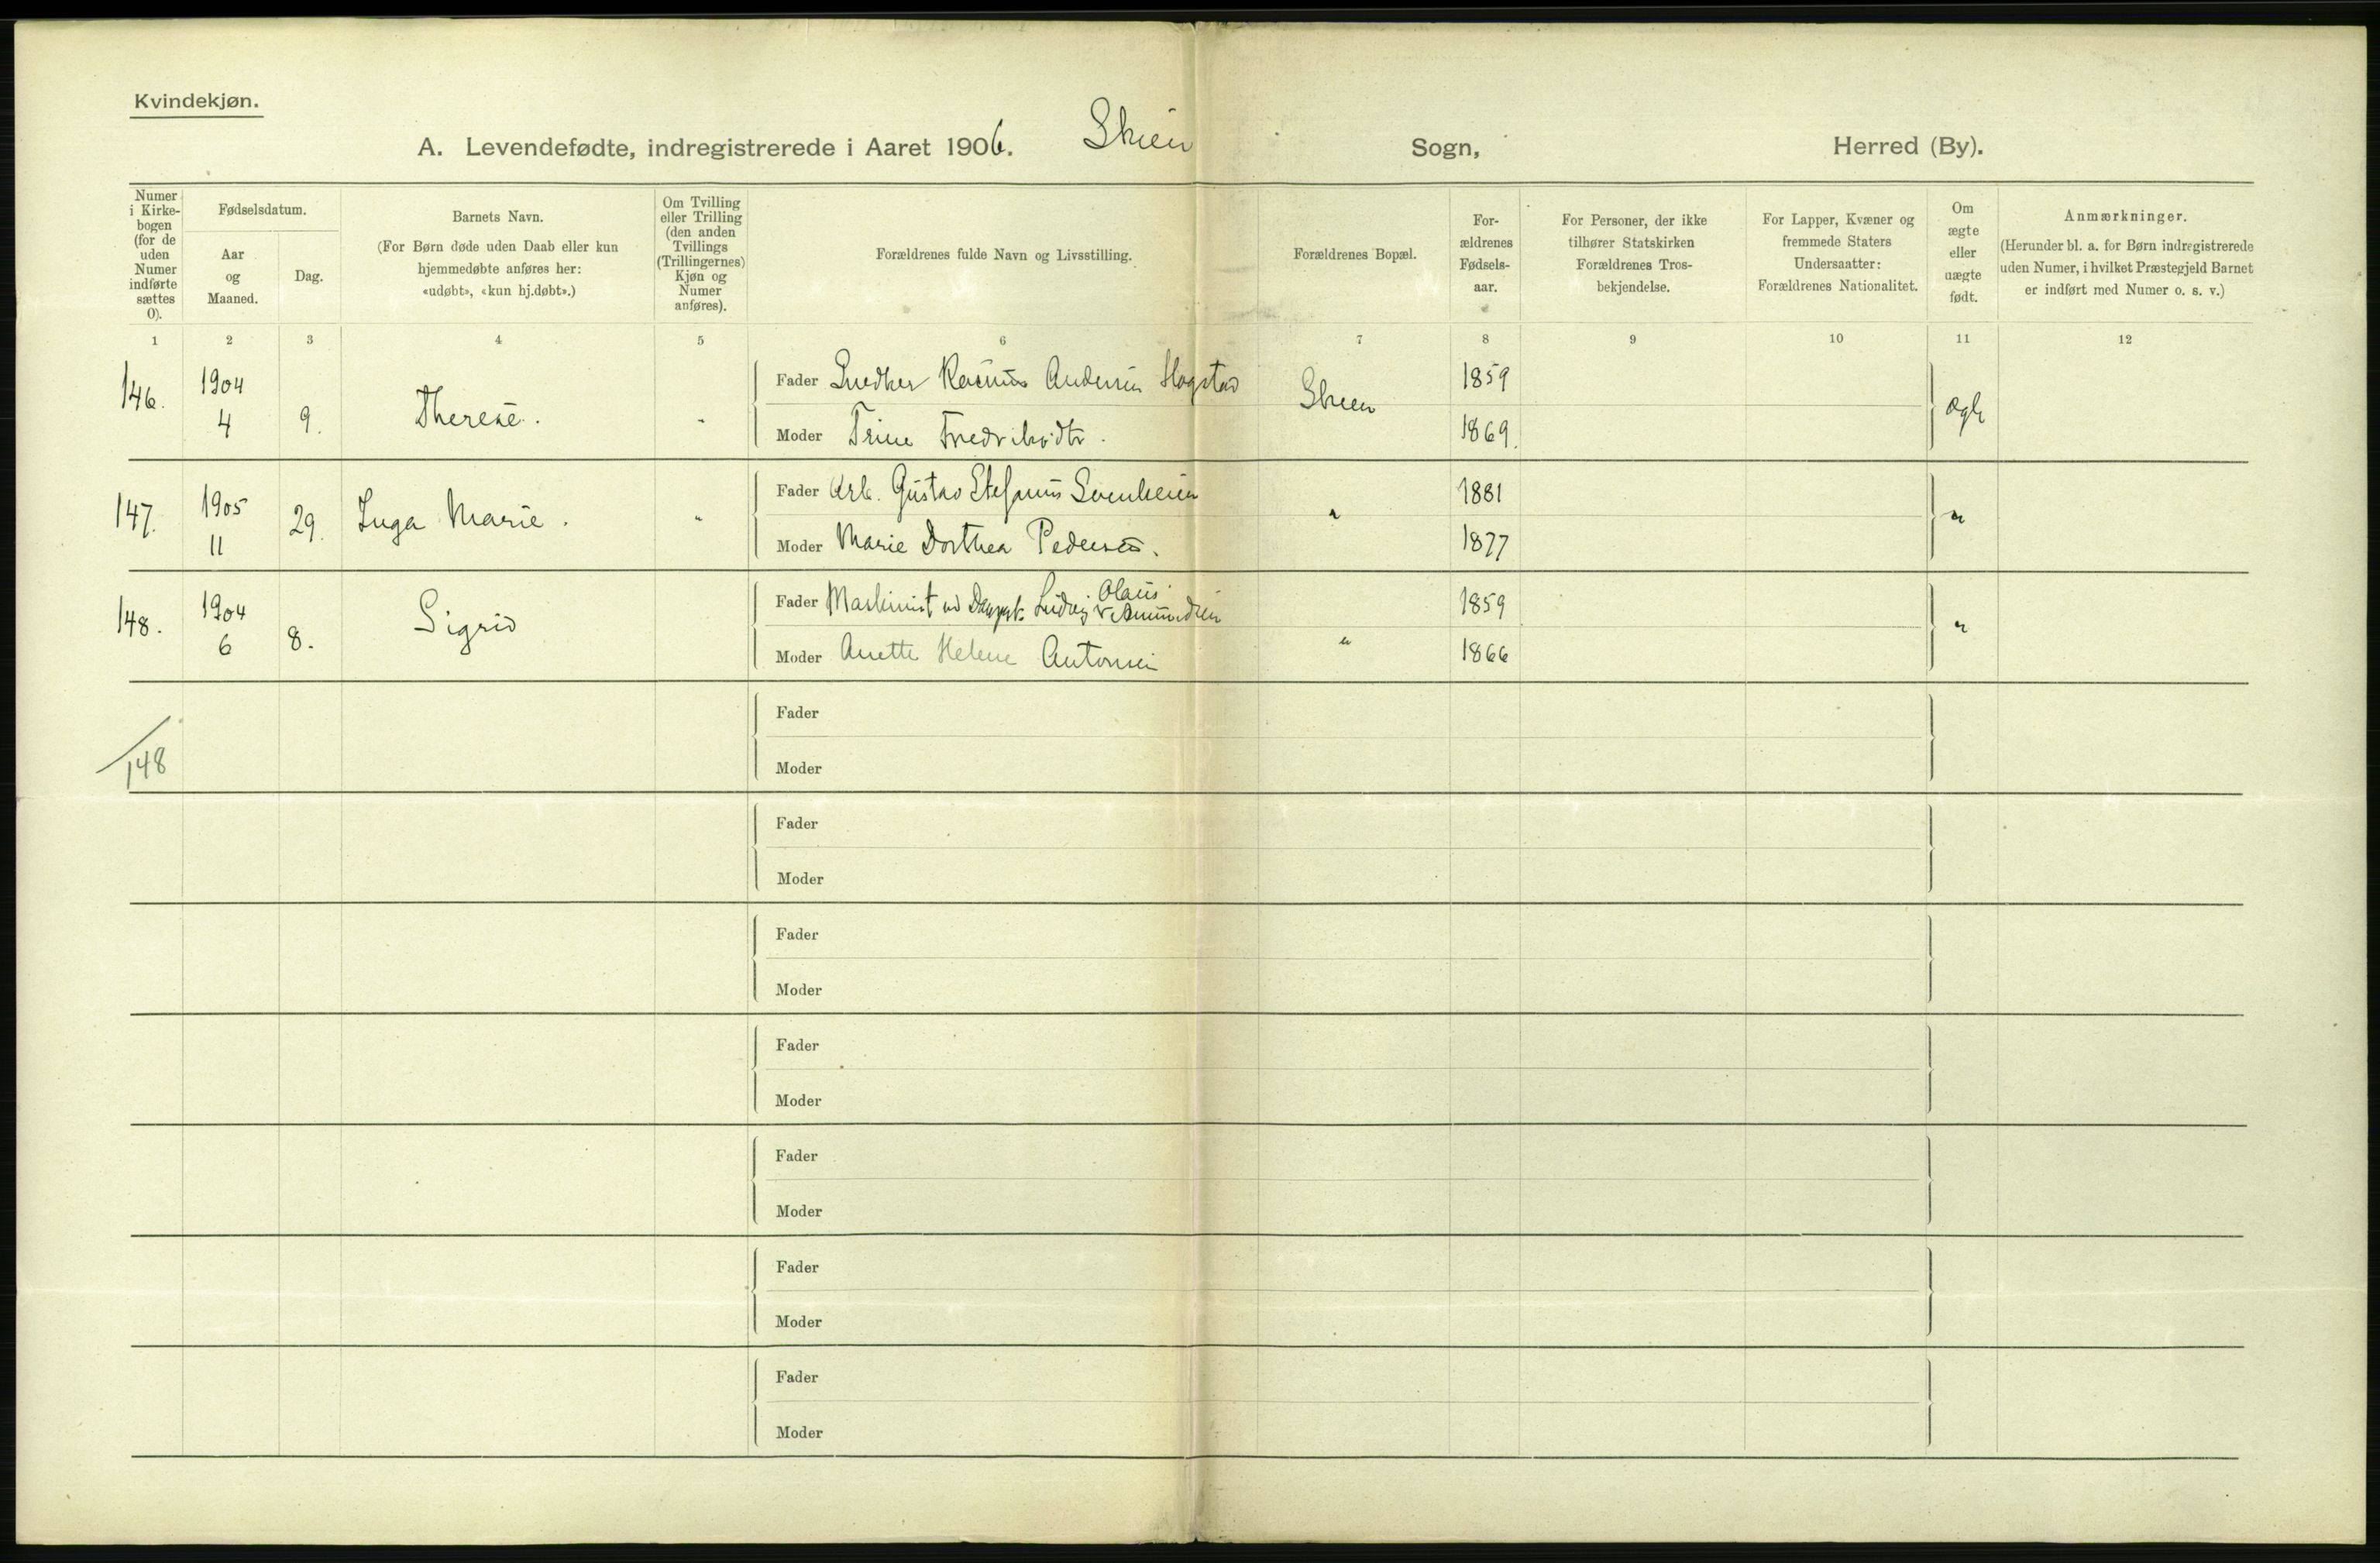 Kvindekjøn.
A. Levendefødte, indregistrerede i Aaret 1906. Skien Sogn, Herred (By).
Numer i Kirkebogen (for de uden Numer indførte sættes 0).
Fødselsdatum.
Aar og Maaned.
Dag.
Barnets Navn.
(For Børn døde uden Daab eller kun
hjemmedøbte anføres her:
«udøbt», «kun hj.døbt».)
Om Tvilling
eller Trilling
(den anden
Tvillings
(Trillingernes)
Kjøn og
Numer
anføres).
Forældrenes fulde Navn og Livsstilling.
Forældrenes Bopæl.
For-
ældrenes
Fødsels-
aar.
For Personer, der ikke
tilhører Statskirken
Forældrenes Tros-
bekjendelse.
For Lapper, Kvæner og
fremmede Staters
Undersaatter:
Forældrenes Nationalitet.
Om
ægte
eller
uægte
født.
Anmærkninger.
(Herunder bl. a. for Børn indregistrerede
uden Numer, i hvilket Præstegjeld Barnet
er indført med Numer o. s. v.)
1 2 3 4 5 6 7 8 9 10 11 12
146. 1904 4 9. Therese. " Fader Snedker Rasmus Andersen Hogstad Skien 1859 ægte
Moder Trine Fredriksdtr. 1869.
147. 1905 11 29. Inga Marie. " Fader Arb. Gustav Stefanus Svenheien " 1881 "
Moder Marie Dorthea Pedersen. 1877
148. 1904 6 8. Sigrid Fader Maskinist Ludvig Olaus Amundsen " 1859 "
Moder Anette Helene Antonsen 1866
Fader
148
Moder
Fader
Moder
Fader
Moder
Fader
Moder
Fader
Moder
Fader
Moder
Fader
Moder